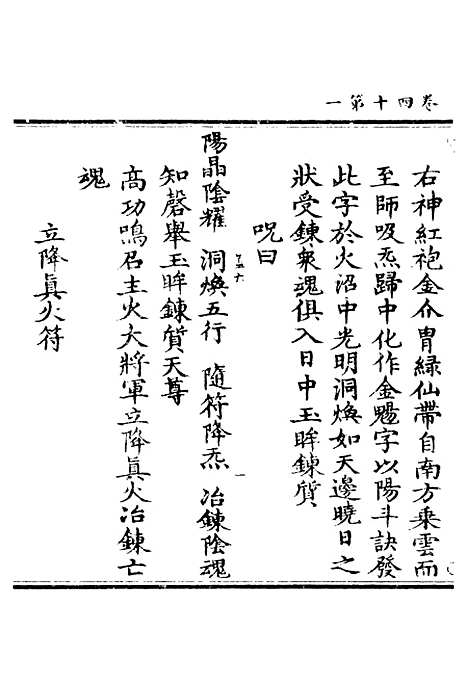 卷四十第一
右神紅袍金介冑緑仙帶自南方乗雲而
至師吸炁歸中化作金𩲃字以陽斗訣發
此字於火沼中光明洞煥如天邊曉日之
狀受鍊衆魂俱入日中玉眸鍊質
呪曰
陽晶陰耀　洞煥五行　隨符降炁　冶鍊陰魂
知磬舉玉眸鍊質天尊
高功鳴召主火大將軍立降眞火冶鍊亡
魂
立降眞火符